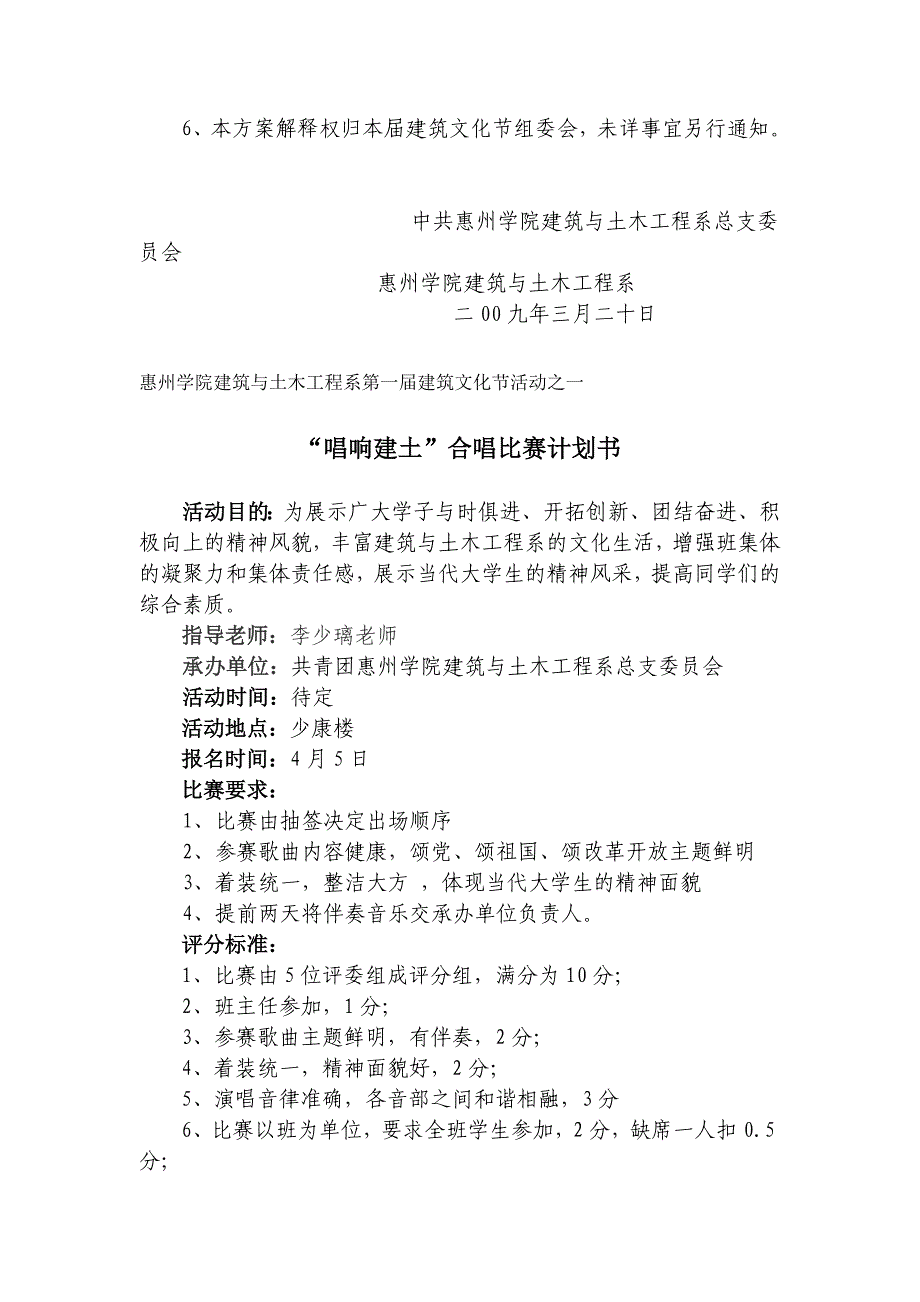 6、本方案解释权归本届建筑文化节组委会，未详事宜另行通知。
中共惠州学院建筑与土木工程系总支委
员会
惠州学院建筑与土木工程系
二00九年三月二十日
惠州学院建筑与土木工程系第一届建筑文化节活动之一
“唱响建土”合唱比赛计划书
活动目的：为展示广大学子与时俱进、开拓创新、团结奋进、积
极向上的精神风貌，丰富建筑与土木工程系的文化生活，增强班集体
的凝聚力和集体责任感，展示当代大学生的精神风采，提高同学们的
综合素质。
指导老师：李少璃老师
承办单位：共青团惠州学院建筑与土木工程系总支委员会
活动时间：待定
活动地点：少康楼
报名时间：4月5日
比赛要求：
1、比赛由抽签决定出场顺序
2、参赛歌曲内容健康，颂党、颂祖国、颂改革开放主题鲜明
3、着装统一，整洁大方 ，体现当代大学生的精神面貌
4、提前两天将伴奏音乐交承办单位负责人。
评分标准：
1、比赛由5位评委组成评分组，满分为10分；
2、班主任参加，1分；
3、参赛歌曲主题鲜明，有伴奏，2分；
4、着装统一，精神面貌好，2分；
5、演唱音律准确，各音部之间和谐相融，3分
6、比赛以班为单位，要求全班学生参加，2分，缺席一人扣0.5
分；